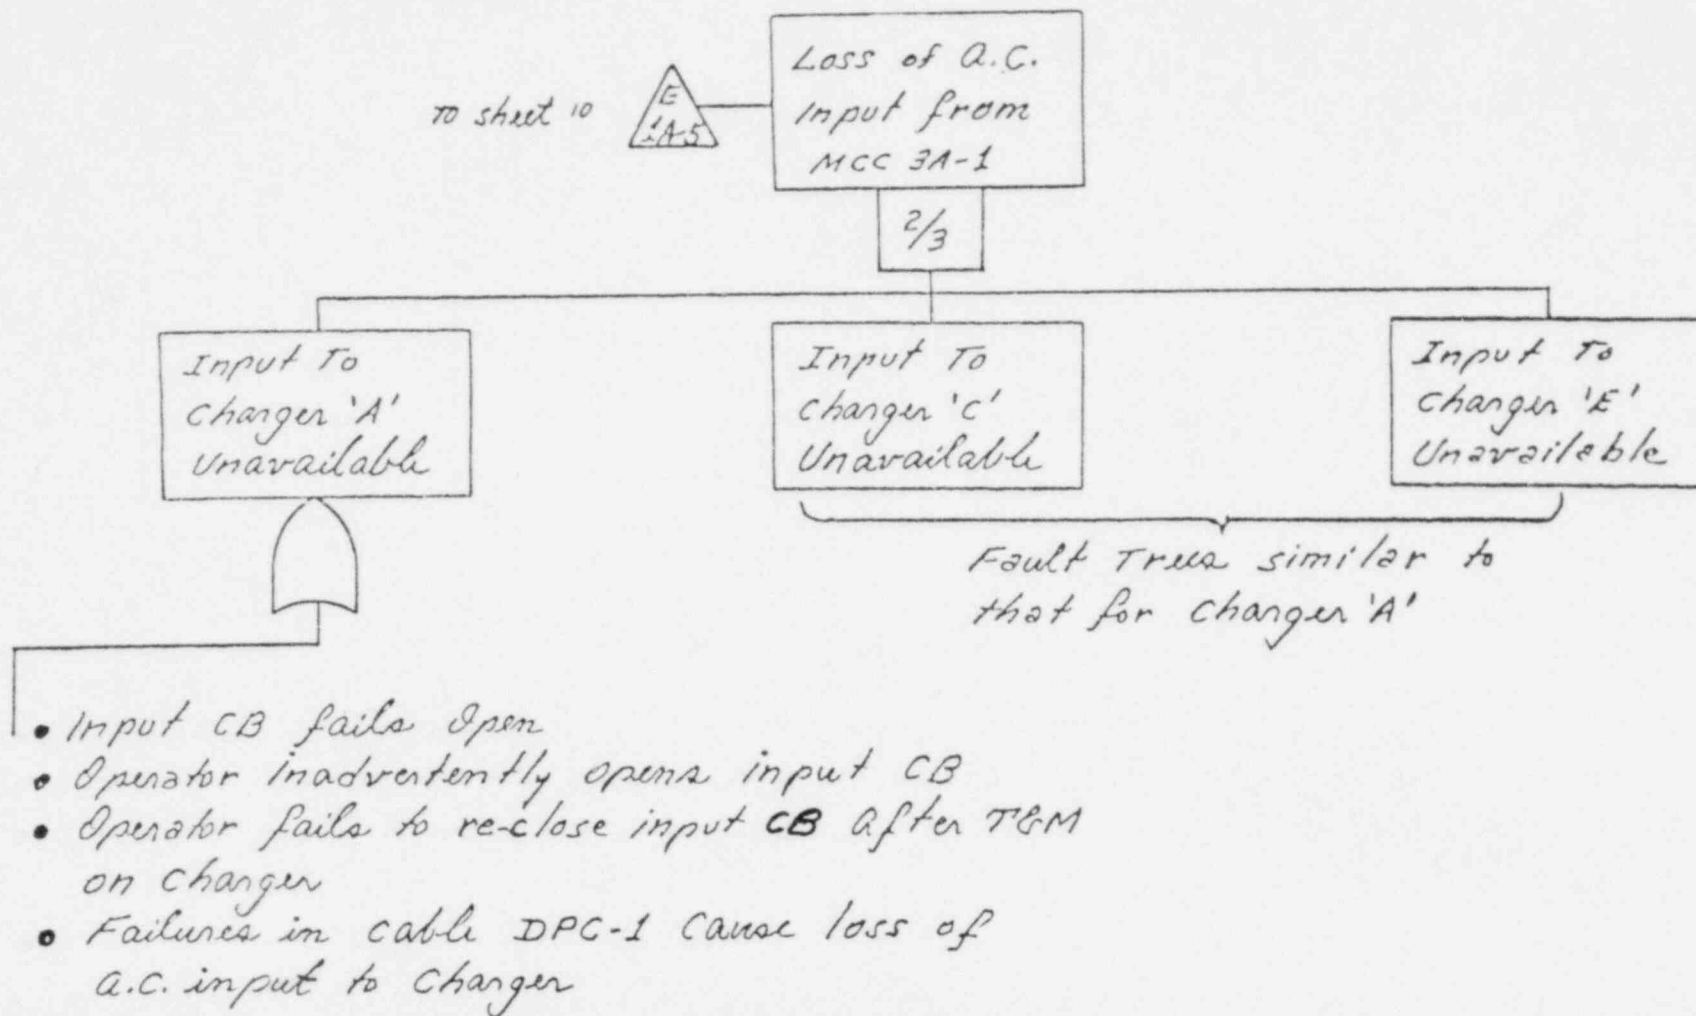 Loss of A.C.
Input from
MCC 3A-1
To sheet 10
E
1A-5
2/3
Input To
Charger 'A'
Unavailable
Input To
Charger 'C'
Unavailable
Input To
Charger 'E'
Unavailable
Fault Trees similar to
that for Charger 'A'
• Input CB fails Open
• Operator inadvertently opens input CB
• Operator fails to re-close input CB after T&M
on Charger
• Failures in cable DPC-1 Cause loss of
A.C. input to Charger